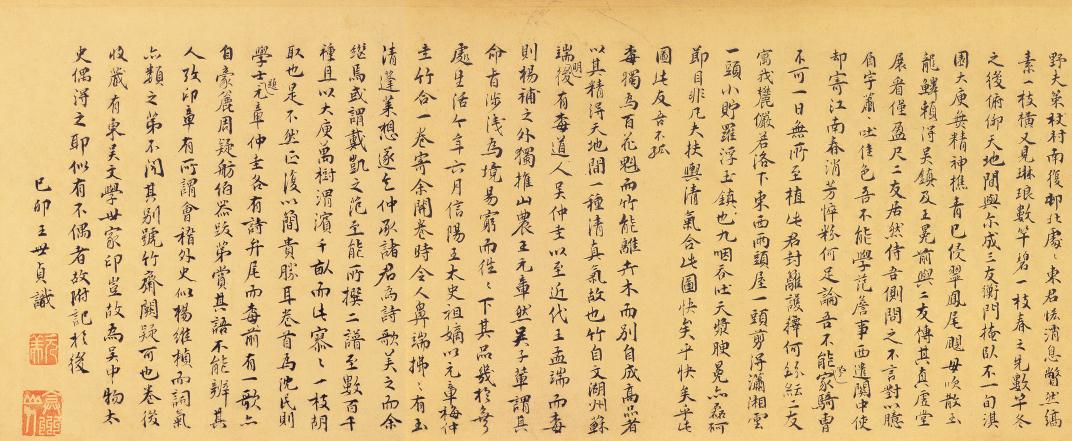 野夫策杖村南復邨北處〻東君恠消息瞥然縞
素一枝橫又見琳琅數竿碧一枝春之先數竿冬
之後俯仰天地間與尔成三友衡門掩臥不一旬淇
園大庾無精神樵青已侵翠鳳尾颶母吹散玉
龍鱗賴得吳鎮及王冕前與二友傳其真虛堂
展看僅盈尺二友居然侍吾側問之不言對以臆
眉宇蕭〻吐佳色吾不能學范詹事西遣閬中使
却寄江南春消芳悴粉何足論吾不能家騎曹
不可一日無所至植此君封離護籜何紛紜二友
寓我艷儼若洛下東西兩頭屋一頭剪得瀟湘雲
一頭小貯羅浮玉鎮也九咽吞吐天漿腴冕亦磊砢
節目非凡夫扶輿清氣合此圖快矣乎快矣乎此
圖此友吾不孤
毒獨為百花魁而竹能離卉木而別自成高品者
以其精得天地間一種清真氣故也竹自文湖州蘇
端明後有毒道人吳仲圭以至近代王孟端而毒
則楊補之外獨推山農王元章然吳子輩謂其
命旨涉淺為境易窮而徃〻下其品幾於無
處生活今年六月信陽王太史祖嫡以元章梅仲
圭竹合一卷寄余開卷時令人鼻端拂〻有玉
清蓬萊想遂乞仲承諸君為詩歌美之而余
繼焉或謂戴凱之范至能所撰二譜至數百千
種且以大庾萬樹渭濱千畝而此寥〻一枝胡
取也是不然正復以簡貴勝耳卷首為沈民則
學士題元章仲圭各有詩并尾而毒前有一歌亦
自豪麗周疑舫伯器跋第賞其語不能辨其
人攷印章有所謂會稽外史似楊維楨而詞氣
亦類之第不聞其別號竹齋闕疑可也卷後
收藏有東吳文學世家印豈故為吳中物太
史偶得之耶似有不偶者故附記於後
己卯王世貞識